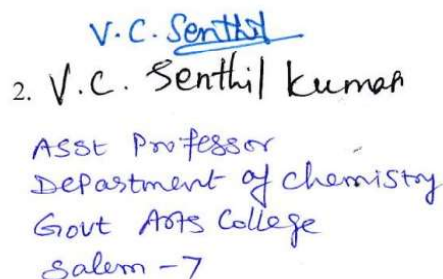 V.C. Senthil
2. V.C. Senthil Kumar
Asst Professor
Department of Chemistry
Govt Arts College
Salem - 7